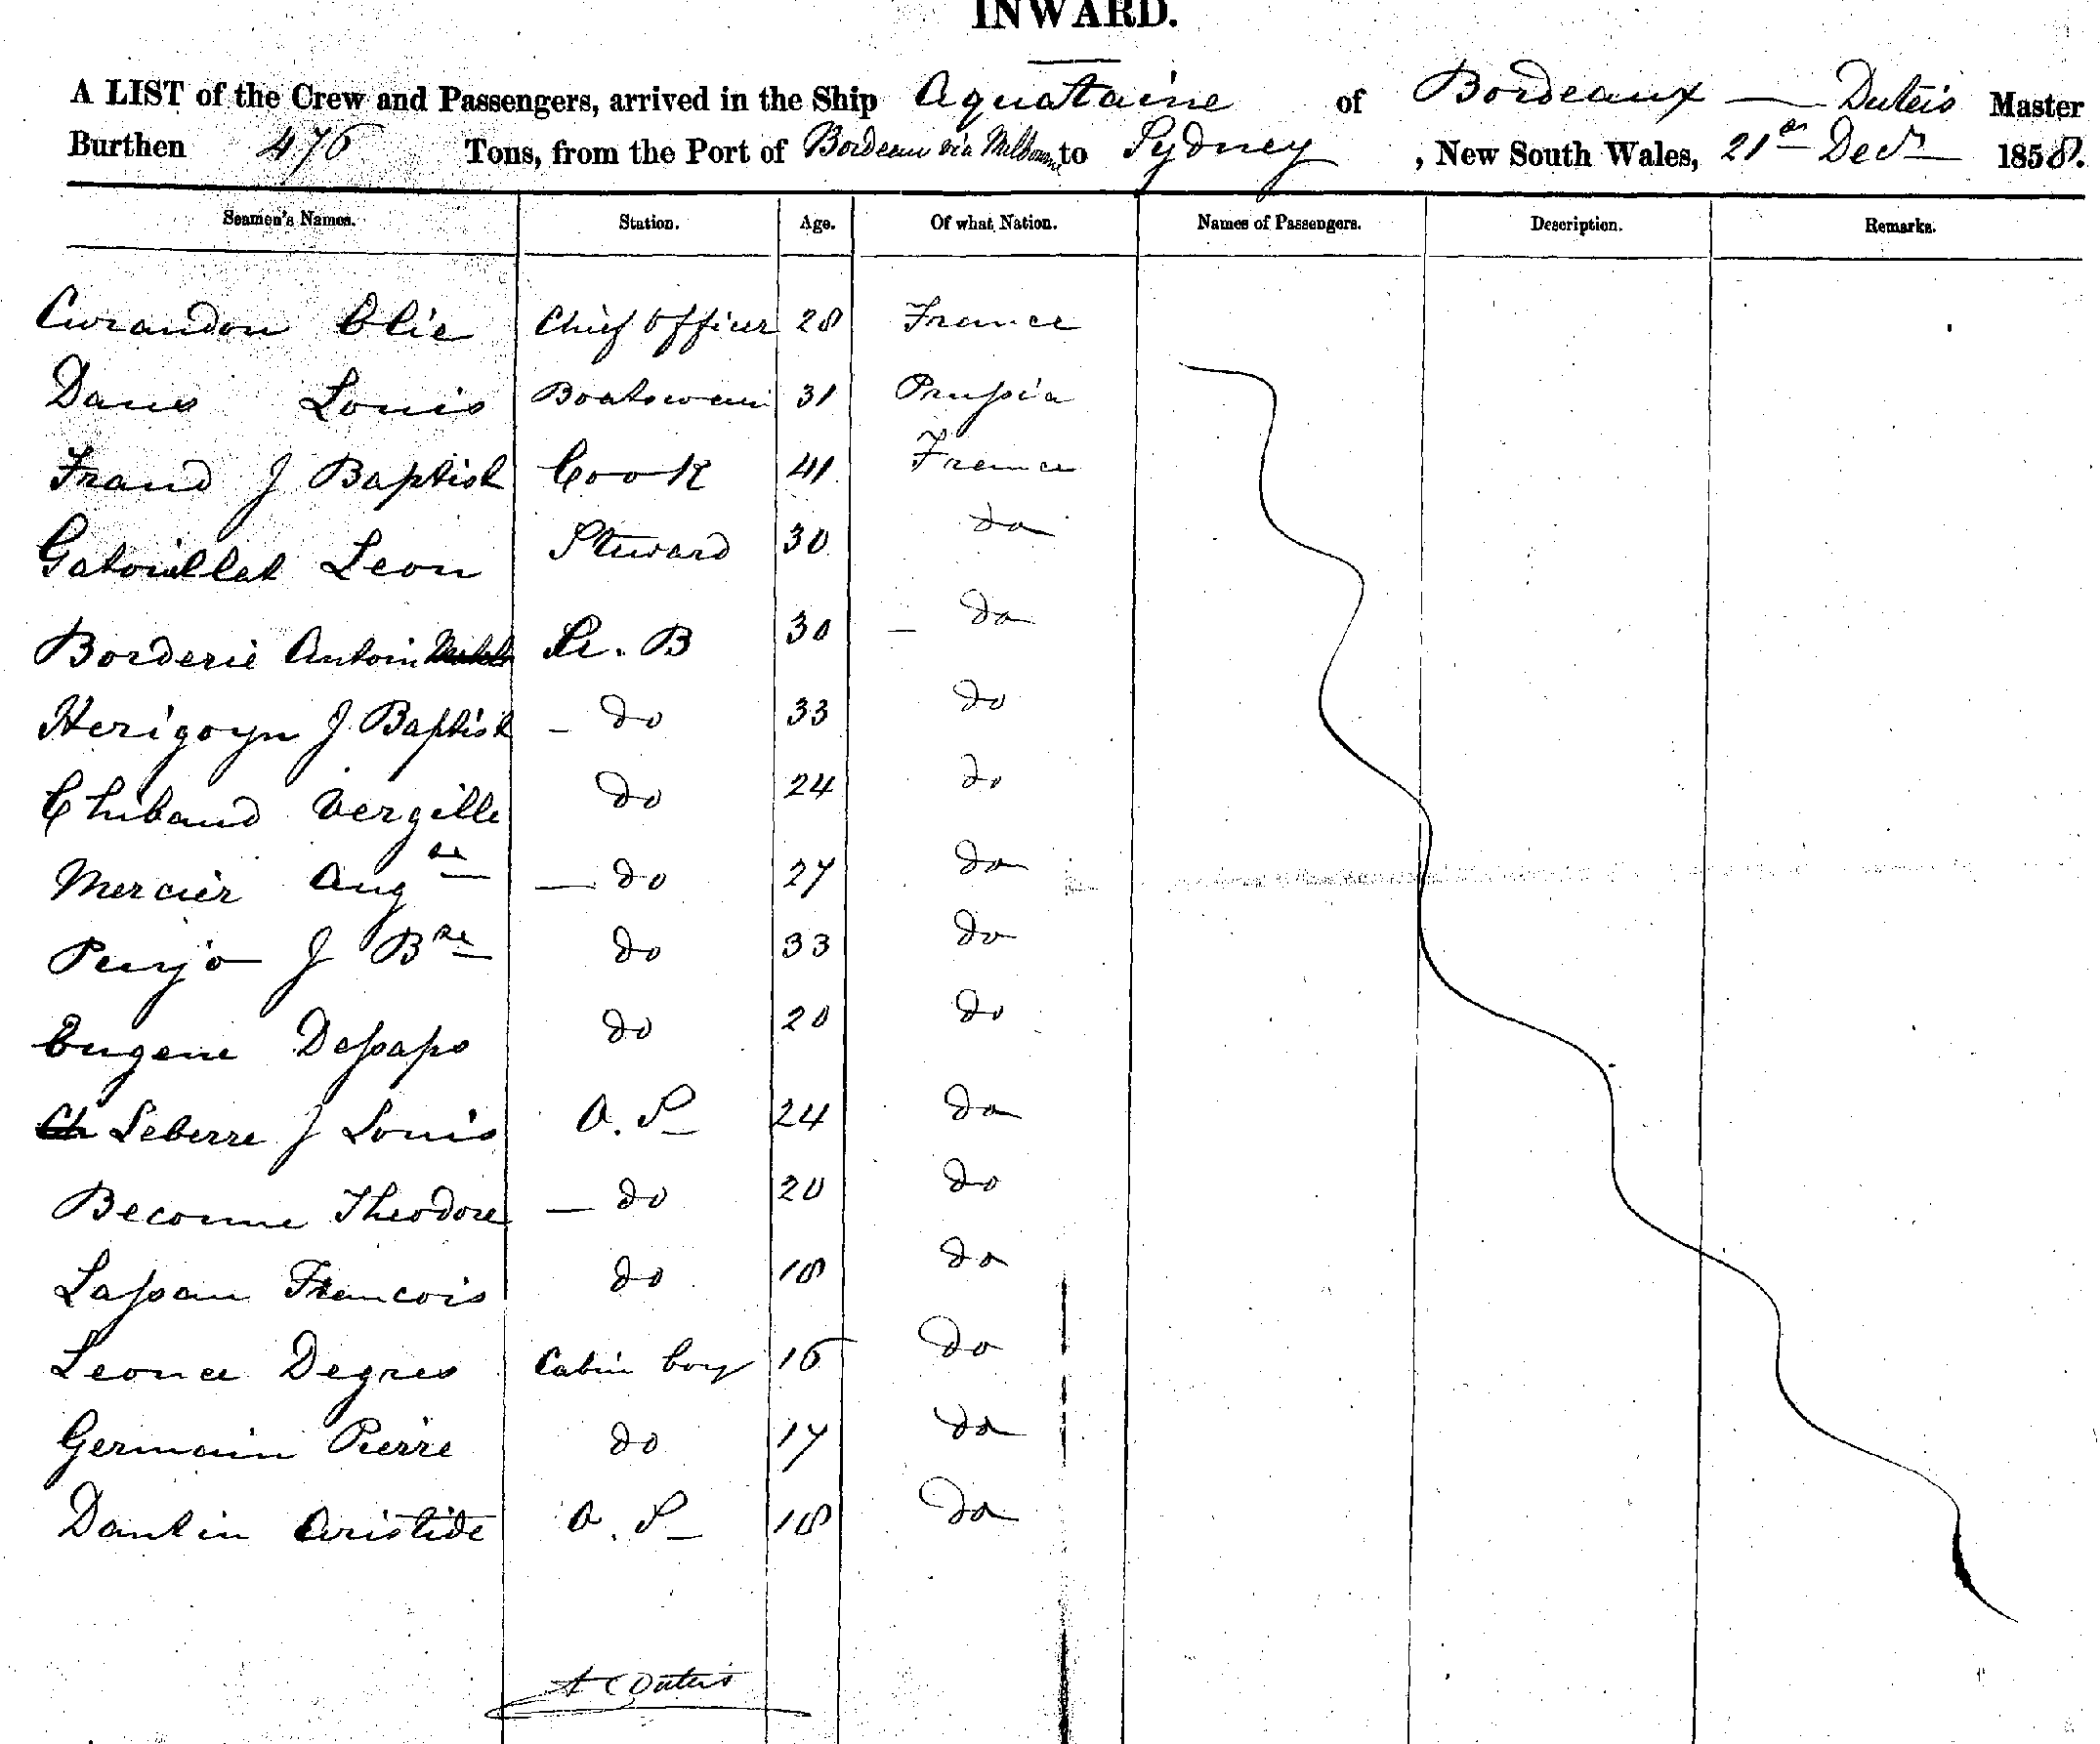 INWARD.
A LIST of the Crew and Passengers, arrived in the Ship Aquataine of Bordeaux — Duteis Master
Burthen 476 Tons, from the Port of Bordeau via Melbourne to Sydney, New South Wales, 21st Decr 1858.
Seamen's Names. Station. Age. Of what Nation. Names of Passengers. Description. Remarks.
Curandon Elie Chief Officer 28 France
Daus Louis Boatswain 31 Prussia
Fraud J Baptist Cook 41 France
Gatouillat Leon Steward 30 do
Borderie Antoin S. B 30 do
Herigoyn J Baptist do 33 do
Thibaud Vergille do 24 do
Mercier Augte do 27 do
Penjo J Bte do 33 do
Eugene Dessaps do 20 do
Leberre J Louis O. S 24 do
Beconne Theodore do 20 do
Lassau Francois do 18 do
Leonce Degres Cabin boy 16 do
Germain Pierre do 17 do
Dantin Aristide O. S 18 do
A C Duteis